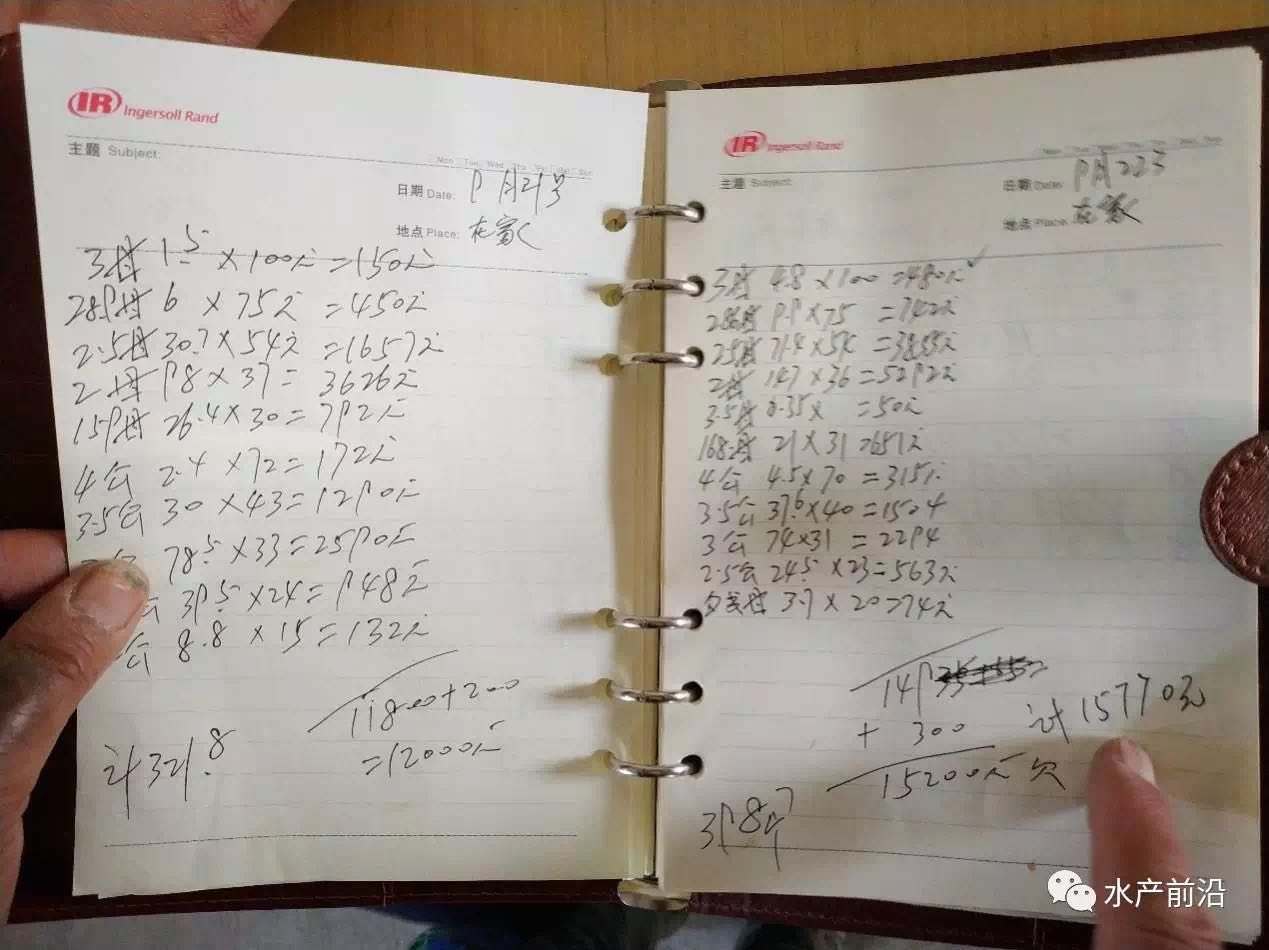 IR Ingersoll Rand
主题 Subject:
Mon Tue Wed Thu Fri Sat Sun
日期 Date: 9月21号
地点 Place: 在家
3母 1.5 × 100元 = 150元
28母 6 × 75元 = 450元
2.5母 30.7 × 54元 = 1657元
2母 98 × 37 = 3626元
159母 26.4 × 30 = 792元
4公 2.4 × 72 = 172元
3.5公 30 × 43 = 1290元
公 78.5 × 33 = 2590元
公 39.5 × 24 = 948元
公 8.8 × 15 = 132元
11800 + 200
= 12000元
计 321.8
IR Ingersoll Rand
主题 Subject:
Mon Tue Wed Thu Fri Sat Sun
日期 Date: 9月22号
地点 Place: 在家
3母 4.8 × 100 = 480元 ✓
母 9.9 × 75 = 742元
25母 71.4 × 54 = 3855元
2母 147 × 36 = 5292元
3.5母 0.35 × = 50元
168母 21 × 31 = 651元
4公 4.5 × 70 = 315元
3.5公 37.6 × 40 = 1504
3公 74 × 31 = 2294
2.5公 24.5 × 23 = 563元
母 3.7 × 20 = 74元
149
+ 300
15200元 欠
计 15770元
398.7斤
水产前沿